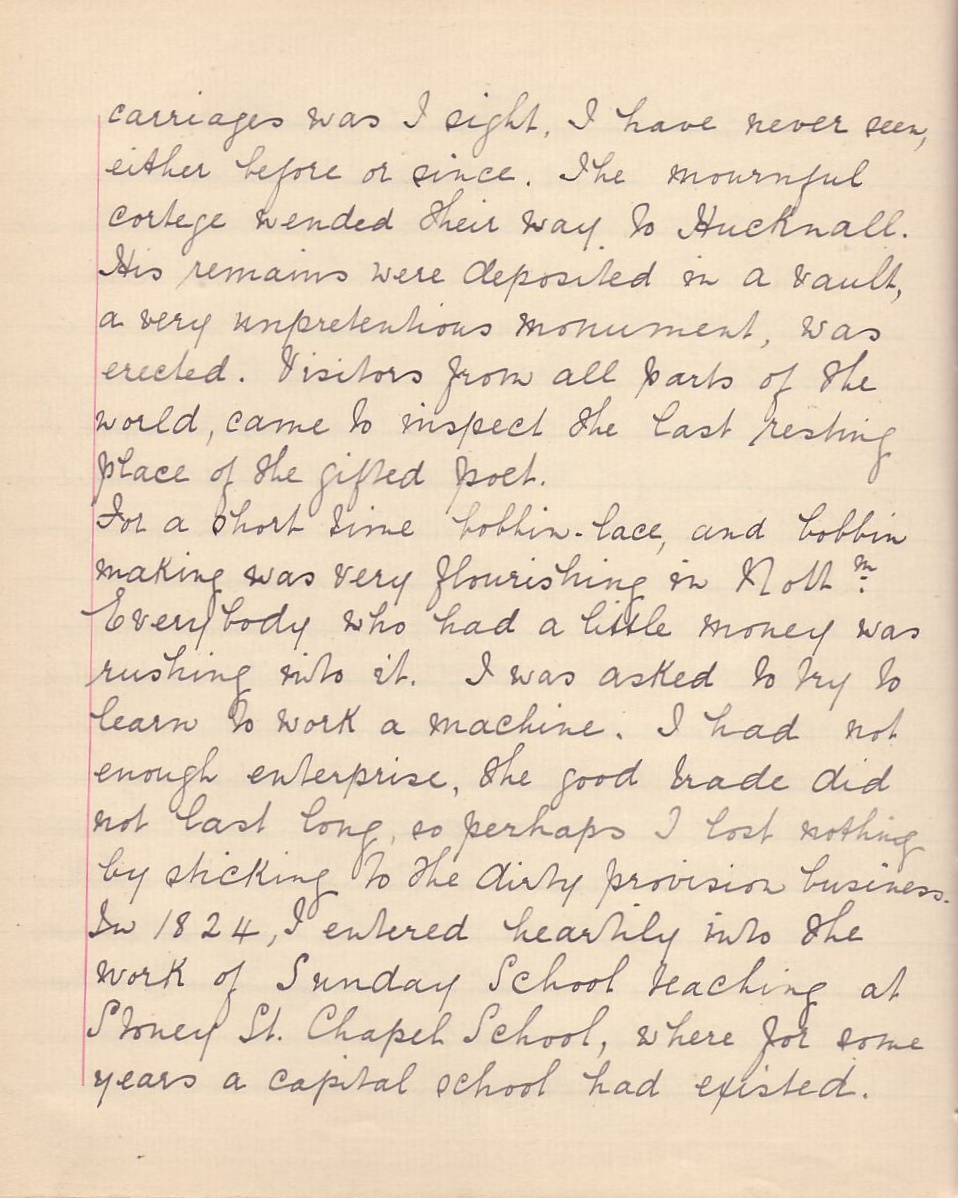 carriages was I sight, I have never seen,
either before or since. The mournful
cortege wended their way to Hucknall.
His remains were deposited in a vault,
a very unpretentious monument, was
erected. Visitors from all parts of the
world, came to inspect the last resting
place of the gifted poet.
For a short time bobbin-lace, and bobbin
making was very flourishing in Nottm.
Everybody who had a little money was
rushing into it. I was asked to try to
learn to work a machine. I had not
enough enterprise, the good trade did
not last long, so perhaps I lost nothing
by sticking to the dirty provision business.
In 1824, I entered heartily into the
work of Sunday School teaching at
Stoney St. Chapel School, where for some
years a capital school had existed.